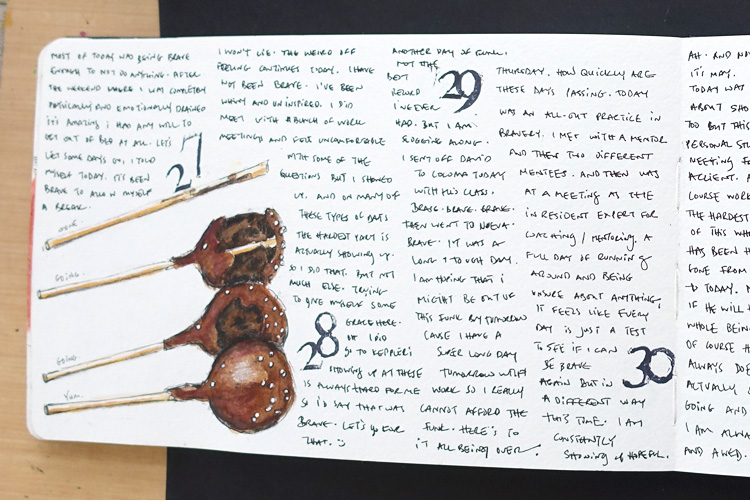 MOST OF TODAY WAS BEING BRAVE
ENOUGH TO NOT DO ANYTHING. AFTER
THE WEEKEND WHERE I WAS COMPLETELY
PHYSICALLY AND EMOTIONALLY DRAINED
IT'S AMAZING I HAD ANY WILL TO
GET OUT OF BED AT ALL. LET'S
LET SOME DAYS GO, I TOLD
MYSELF TODAY. IT'S BEEN
BRAVE TO ALLOW MYSELF
A BREAK.
27
GONE.
GOING.
GOING.
YUM.
I WON'T LIE. THE WEIRD OFF
FEELING CONTINUES TODAY. I HAVE
NOT BEEN BRAVE. I'VE BEEN
WHINY AND UNINSPIRED. I DID
MEET WITH A BUNCH OF WORK
MEETINGS AND FELT UNCOMFORTABLE
WITH SOME OF THE
QUESTIONS BUT I SHOWED
UP. AND ON MANY OF
THESE TYPES OF DAYS
THE HARDEST PART IS
ACTUALLY SHOWING UP.
SO I DID THAT. BUT NOT
MUCH ELSE. TRYING
TO GIVE MYSELF SOME
GRACE HERE.
28
I DID
GO TO
SHOWING UP AT THESE
IS ALWAYS HARD FOR ME
SO I'D SAY THAT WAS
BRAVE. LET'S GO FOR
THAT. :)
ANOTHER DAY OF FUNK.
NOT THE
BEST
RECORD
I'VE EVER
HAD. BUT I AM
SLOGGING ALONG.
I SENT OFF DAVID
TO COLOMA TODAY
WITH HIS CLASS.
BRAVE. BRAVE. BRAVE.
THEN WENT TO
BRAVE. IT WAS A
LONG TOUGH DAY.
I AM HOPING THAT I
MIGHT BE OUT OF
THIS FUNK BY TOMORROW
CAUSE I HAVE A
SUPER LONG DAY
TOMORROW WITH
WORK SO I REALLY
CANNOT AFFORD THE
FUNK. HERE'S TO
IT ALL BEING OVER.
29
THURSDAY. HOW QUICKLY ARE
THESE DAYS PASSING. TODAY
WAS AN ALL-OUT PRACTICE IN
BRAVERY. I MET WITH A MENTOR
AND THEN TWO DIFFERENT
MENTEES. AND THEN WAS
AT A MEETING AS THE
IN RESIDENT EXPERT FOR
COACHING/MENTORING. A
FULL DAY OF RUNNING
AROUND AND BEING
UNSURE ABOUT ANYTHING,
IT FEELS LIKE EVERY
DAY IS JUST A TEST
TO SEE IF I CAN
BE BRAVE
AGAIN BUT IN
A DIFFERENT WAY
THIS TIME. I AM
CONSTANTLY
SHOWING UP HOPEFUL.
30
AH. AND
IT'S MAY.
TODAY WAS
ABOUT
TOO BUT THIS
PERSONAL
MEETING
A CLIENT.
COURSE WORK
THE HARDEST
OF THIS
HAS BEEN
GONE FROM
TODAY.
IF HE WILL
WHOLE
OF COURSE
ALWAYS
ACTUALLY
GOING AND
I AM
AND AWED.